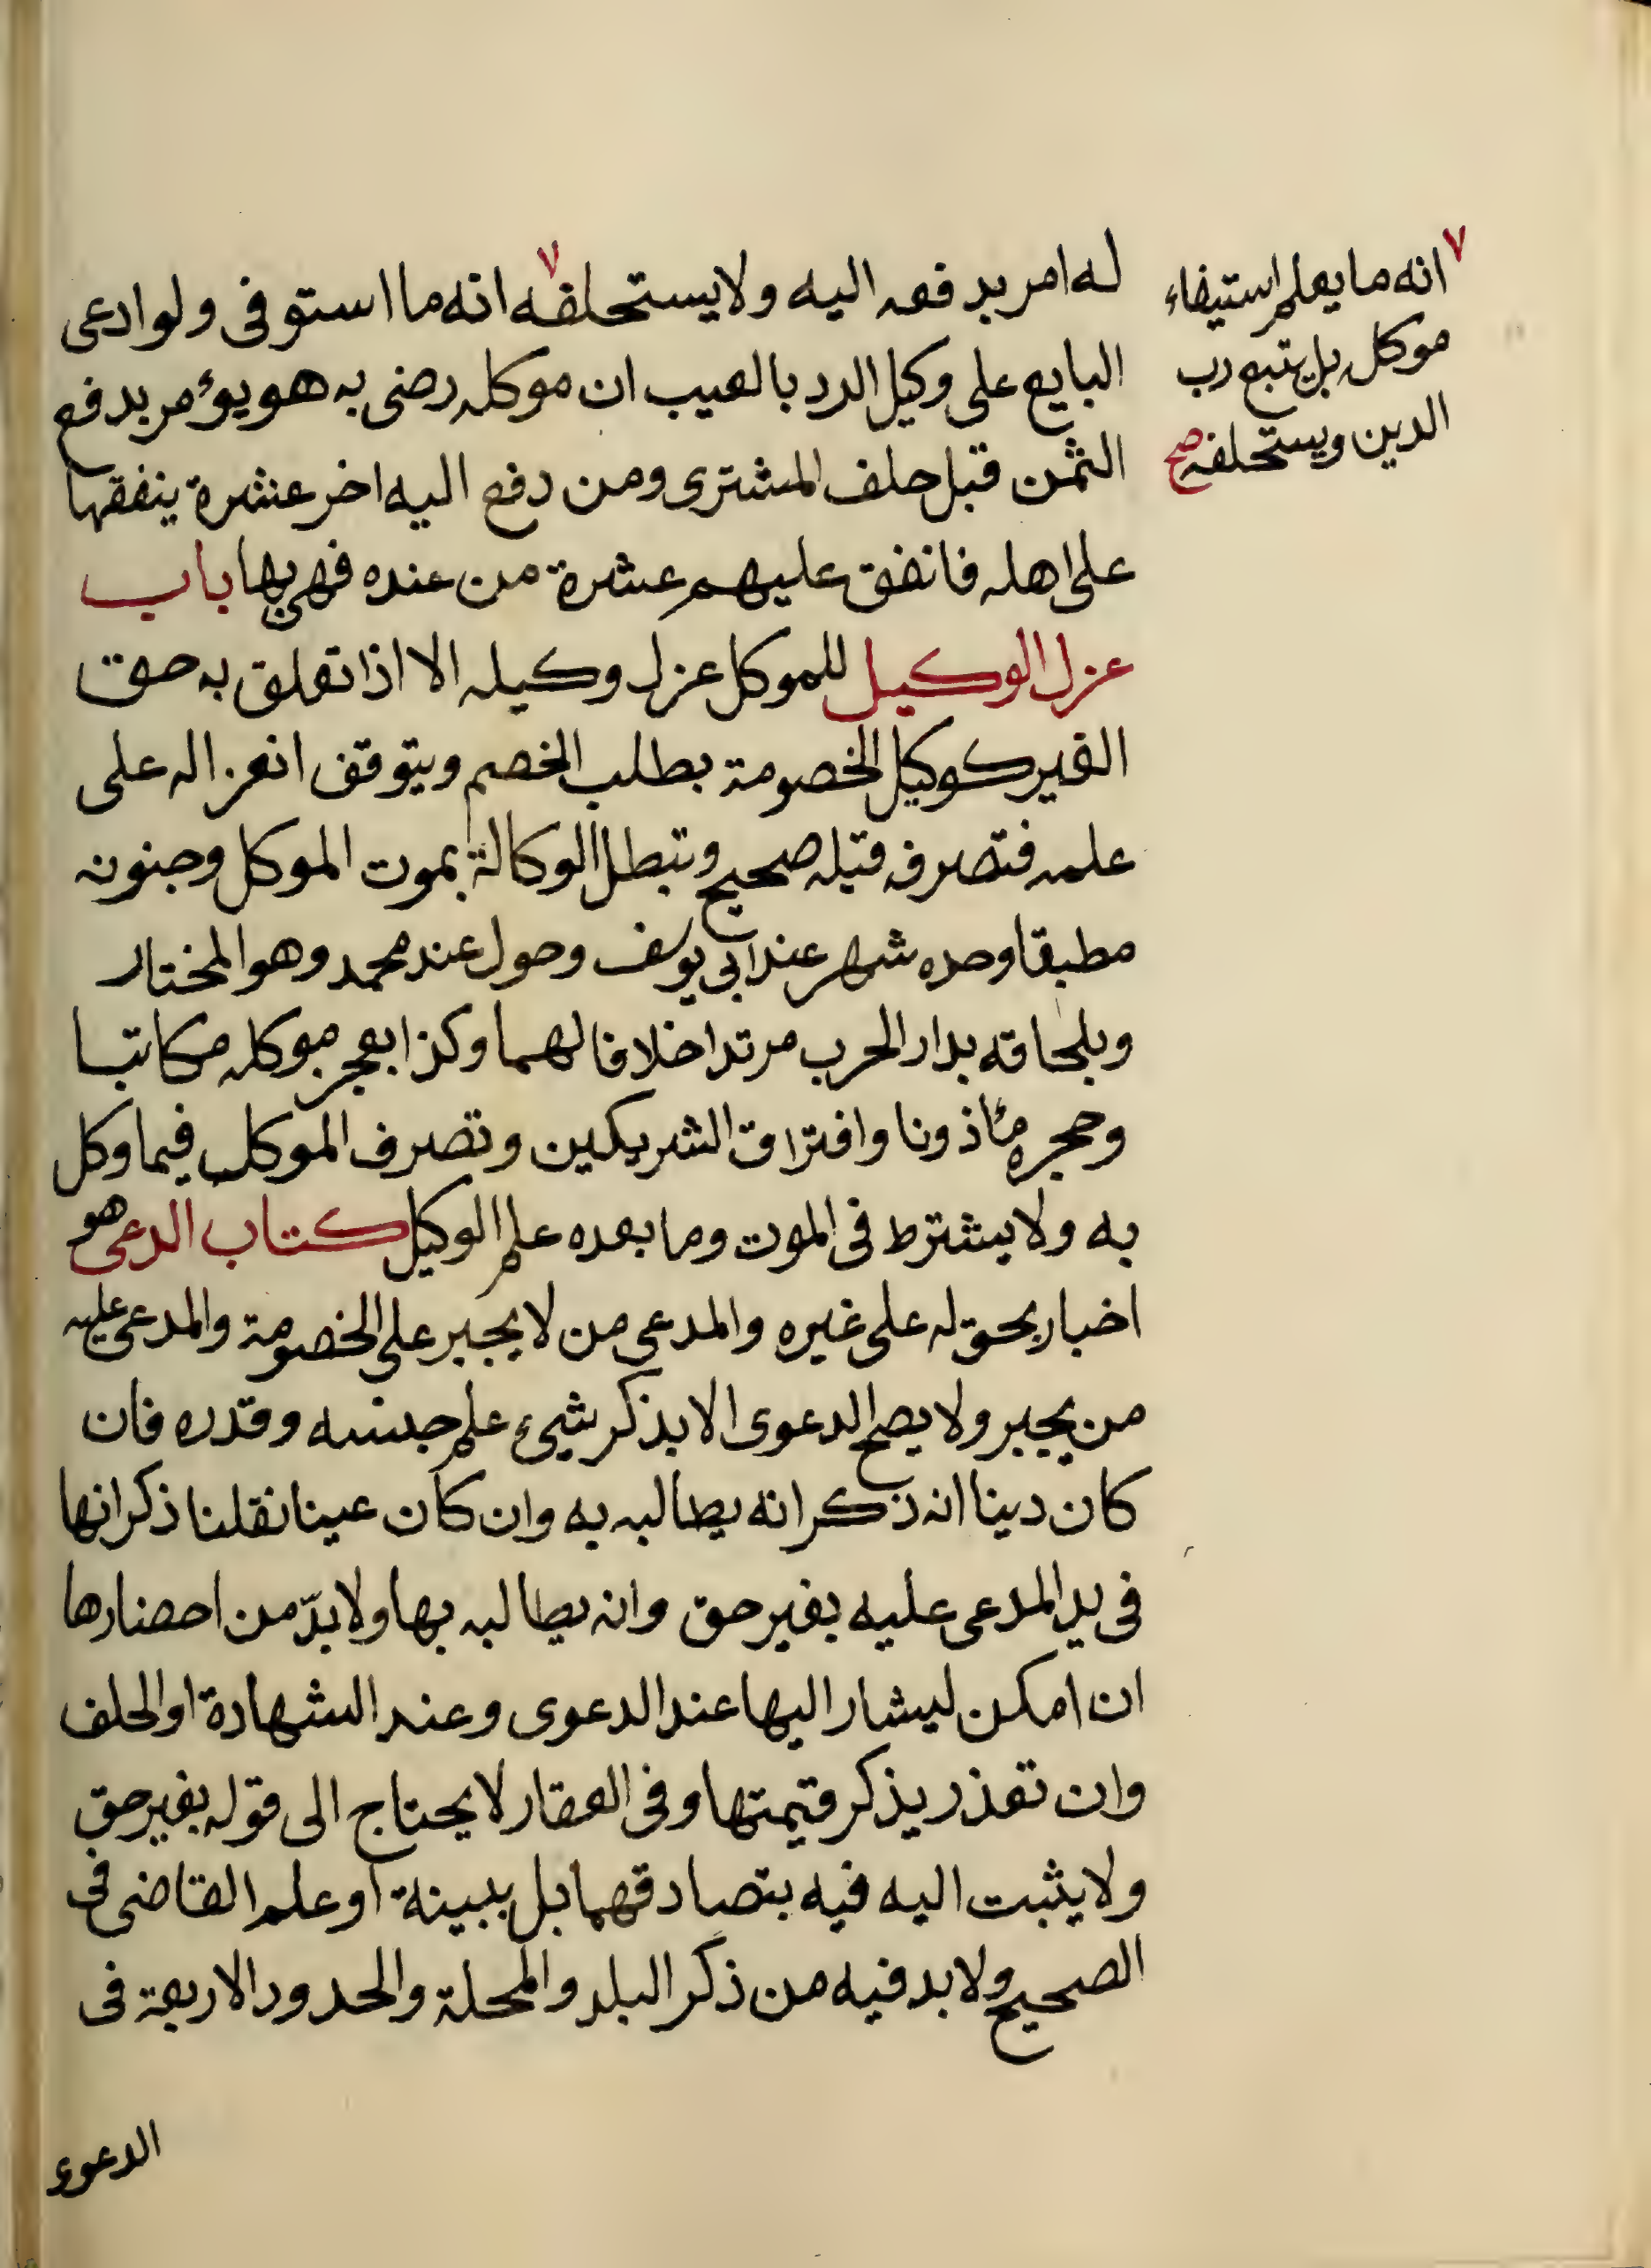 له امر بدفعه اليه ولا يستحلفه ٧ انه ما استوفى ولو ادعى
البايع على وكيل الرد بالعيب ان موكله رضى به هو يؤمر بدفع
الثمن قبل حلف المشترى ومن دفع اليه اخر عشرة ينفقها
على اهله فانفق عليهم عشرة من عنده فهى بها باب
عزل الوكيل للموكل عزل وكيله الا اذا تعلق به حق
الغير كوكيل الخصومة بطلب الخصم ويتوقف انعزاله على
علمه فتصرفه قبله صحيح وتبطل الوكالة بموت الموكل وجنونه
مطبقا وحده شهر عند ابى يوسف وحول عند محمد وهو المختار
وبلحاقه بدار الحرب مرتدا خلافا لهما وكذا بعجز موكله مكاتبا
وحجره مأذونا وافتراق الشريكين وتصرف الموكل فيما وكل
به ولا يشترط فى الموت وما بعده علم الوكيل كتاب الدعى هو
اخبار بحق له على غيره والمدعى من لا يجبر على الخصومة والمدعى عليه
من يجبر ولا يصح الدعوى الا بذكر شىء علم جنسه وقدره فان
كان دينا انه ذكر انه يطالبه به وان كان عينا نقلنا ذكر انها
فى يد المدعى عليه بغير حق وانه يطالبه بها ولا بدّ من احضارها
ان امكن ليشار اليها عند الدعوى وعند الشهادة او الحلف
وان تعذر يذكر قيمتها وفى العقار لا يحتاج الى قوله بغير حق
ولا يثبت اليه فيه بتصادقهما بل ببينة او علم القاضى فى
الصحيح ولا بد فيه من ذكر البلد والمحلة والحدود الاربعة فى
الدعوى
٧ انه ما يعلم استيفاء
موكله بل يتبع رب
الدين ويستحلفه صح